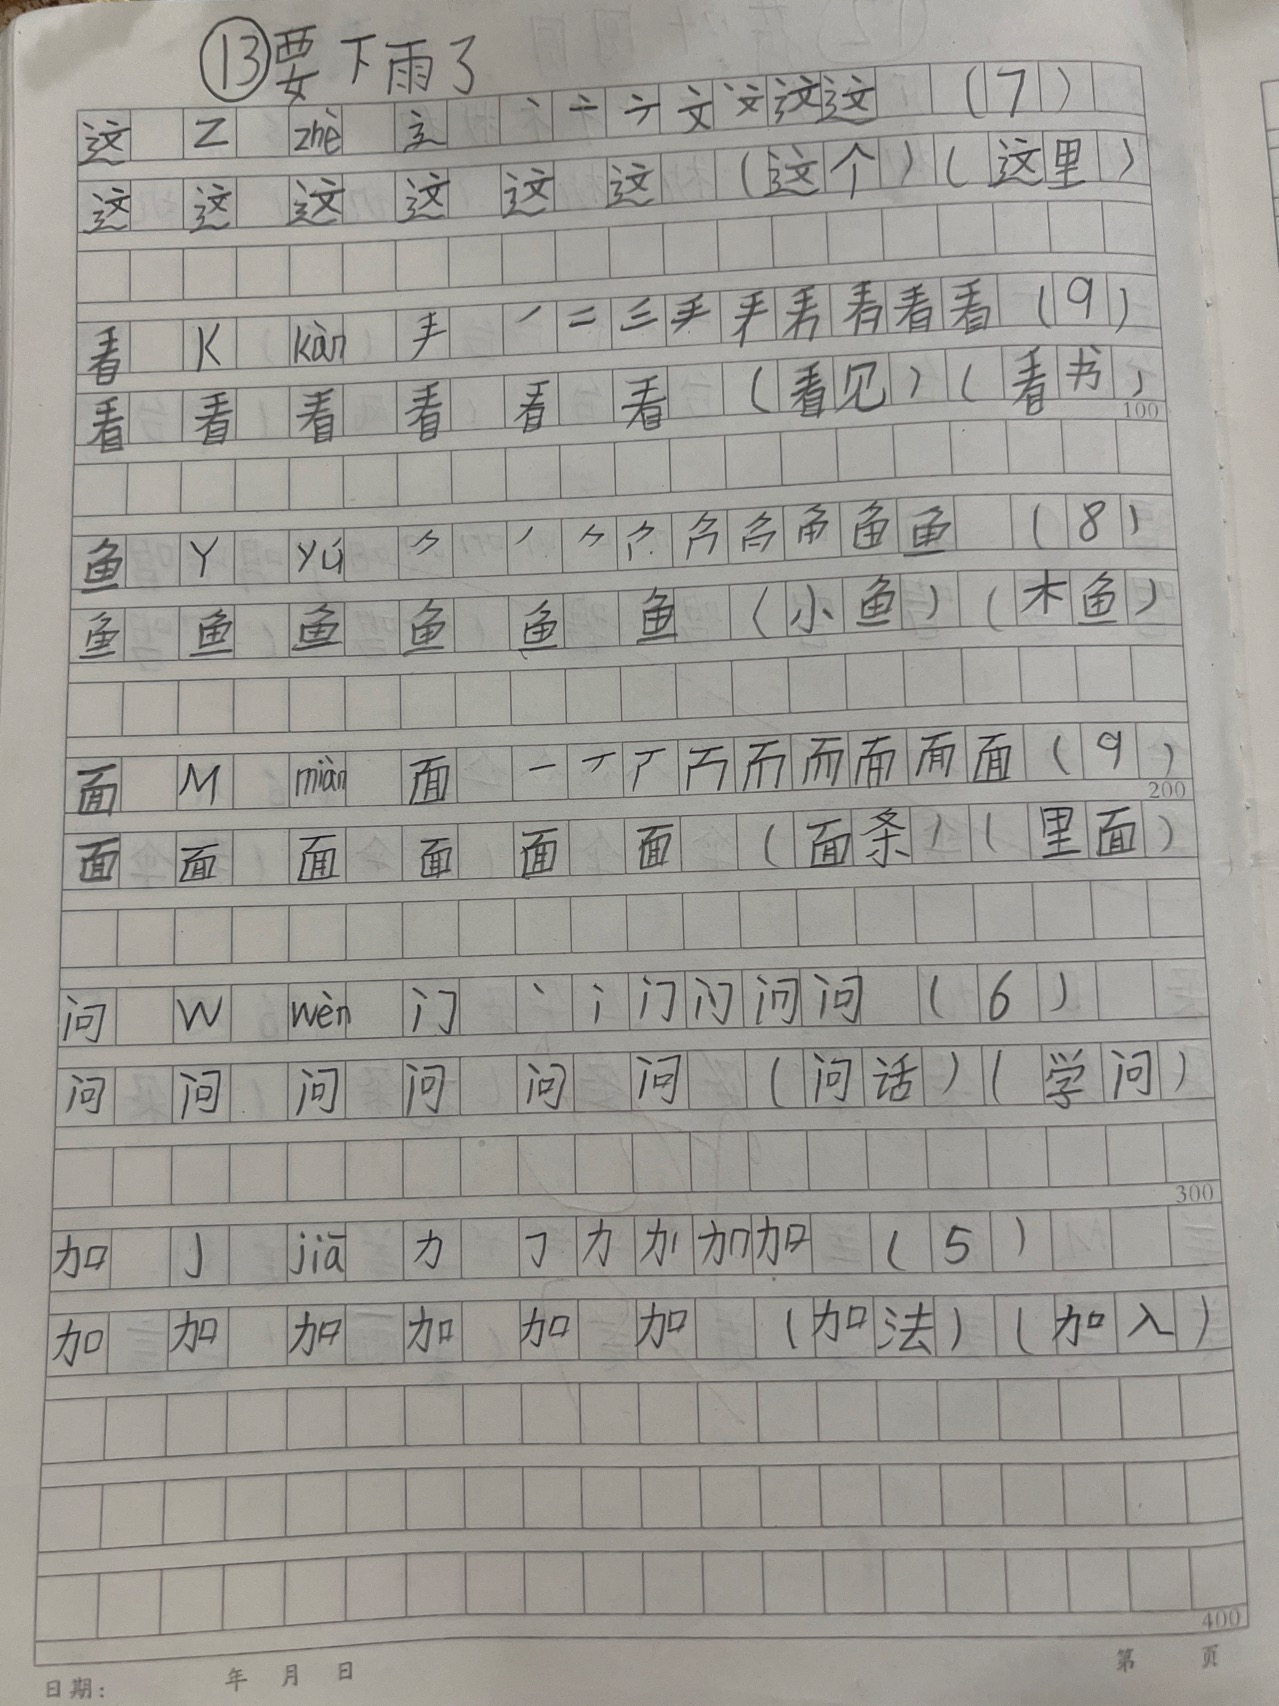 ⑬要下雨了
这 Z zhè 辶 丶 亠 亣 文 文 这 这 (7)
这 这 这 这 这 这 (这个) (这里)
看 K kàn 龵 ノ 二 三 手 看 看 看 (9)
看 看 看 看 看 看 (看见) (看书)
100
鱼 Y yú ⺈ ノ ⺈ 鱼 鱼 (8)
鱼 鱼 鱼 鱼 鱼 鱼 (小鱼) (木鱼)
面 M miàn 面 一 丆 而 面 面 (9)
200
面 面 面 面 面 面 (面条) (里面)
问 W wèn 门 丶 冫 门 问 问 (6)
问 问 问 问 问 问 (问话) (学问)
300
加 J jiā 力 ㇆ 力 加 加 (5)
加 加 加 加 加 加 (加法) (加入)
400
日期: 年 月 日 第 页